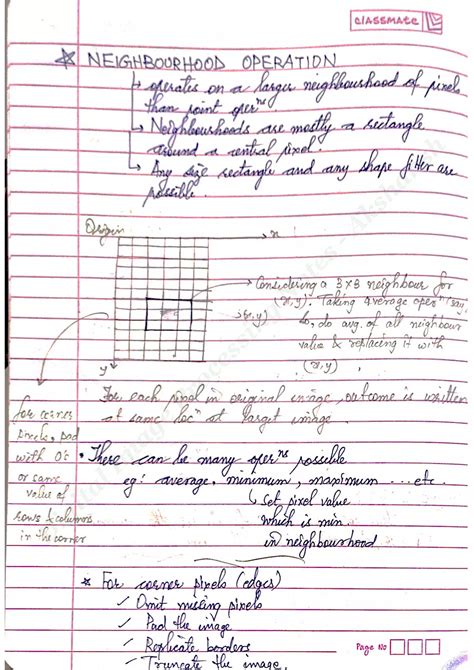 classmate
★ NEIGHBOURHOOD OPERATION
↳ operates on a larger neighbourhood of pixels
than point oper^ns
↳ Neighbourhoods are mostly a rectangle
around a central pixel.
↳ Any size rectangle and any shape filter are
possible.
Origin
x
→ Considering a 3x3 neighbour for
(x,y). Taking Average oper^n (say)
(x,y)
so, do avg. of all neighbour
value & replacing it with
(x,y)
y
For each pixel in original image, outcome is written
at same loc^n at target image.
for corner
pixels, pad
with 0's
or same
value of
rows & columns
in the corner
• There can be many oper^ns possible
eg: average, minimum, maximum ... etc.
↳ set pixel value
which is min.
in neighbourhood
* For corner pixels (edges)
✓ Omit missing pixels
✓ Pad the image
✓ Replicate borders
✓ Truncate the image.
Page No